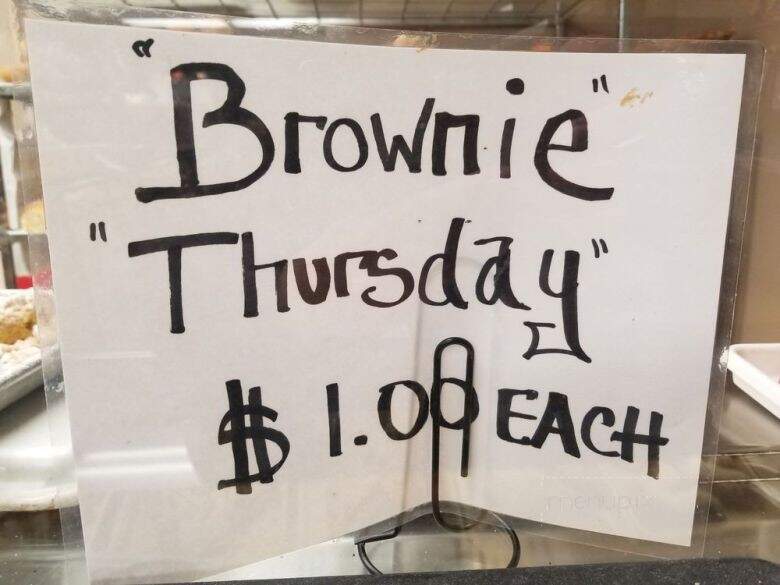 "Brownie"
"Thursday"
$1.00 EACH
menupix